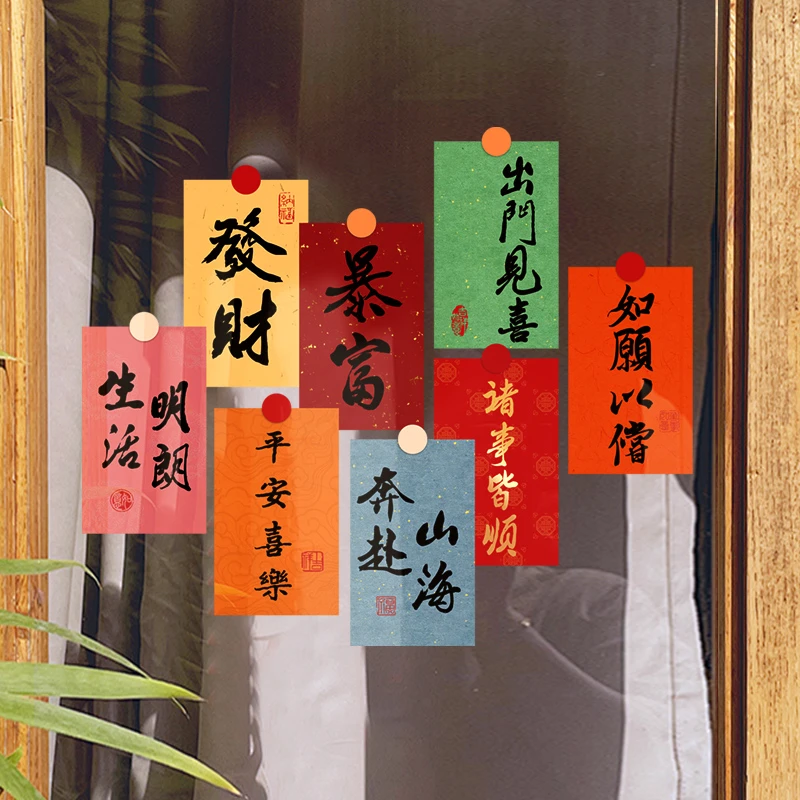 發財
納福
暴富
出門見喜
如願以償
生活
明朗
平安喜樂
奔赴
山海
諸事皆順